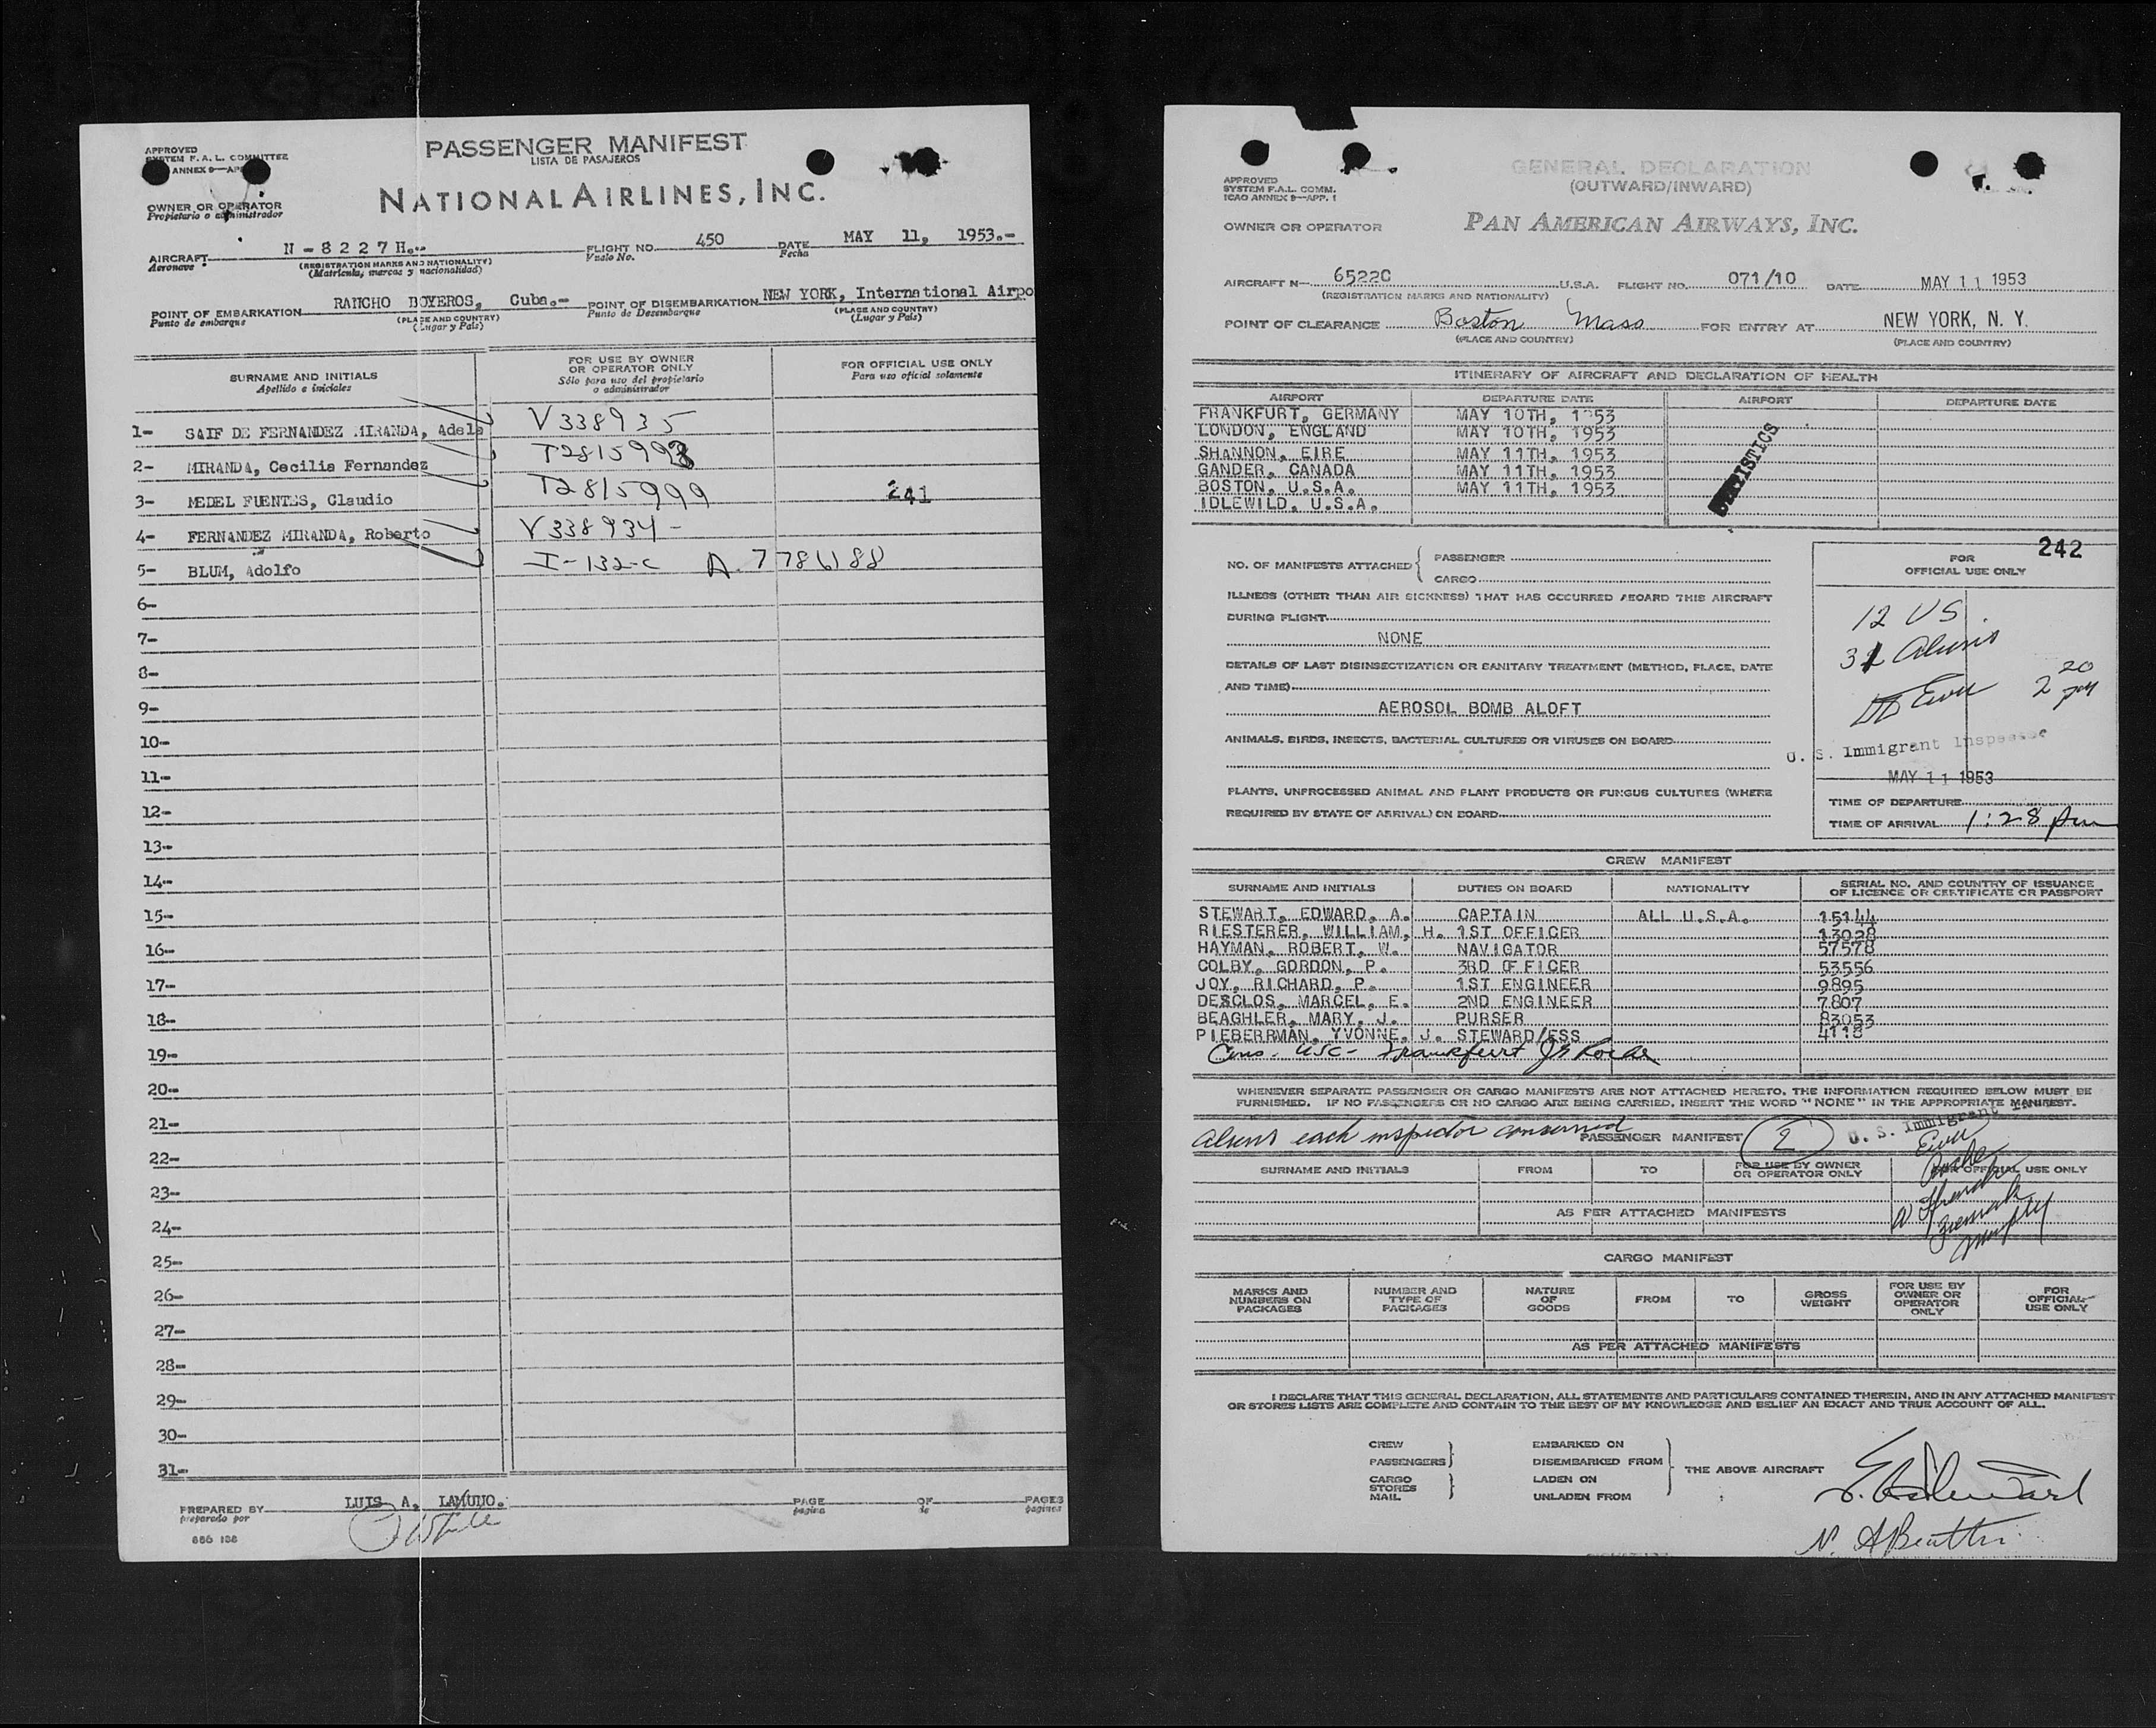 APPROVED
SYSTEM F. A. L. COMMITTEE
ANNEX 9—AP
PASSENGER MANIFEST
LISTA DE PASAJEROS
NATIONAL AIRLINES, INC.
OWNER OR OPERATOR
Propietario o administrador
AIRCRAFT N - 8 2 2 7 H.- FLIGHT NO. 450 DATE MAY 11, 1953.-
Aeronave (REGISTRATION MARKS AND NATIONALITY) Vuelo No. Fecha
(Matricula, marcas y nacionalidad)
POINT OF EMBARKATION RANCHO BOYEROS, Cuba.- POINT OF DISEMBARKATION NEW YORK, International Airpo
Punto de embarque (PLACE AND COUNTRY) Punto de Desembarque (PLACE AND COUNTRY)
(Lugar y País) (Lugar y País)
SURNAME AND INITIALS FOR USE BY OWNER OR OPERATOR ONLY FOR OFFICIAL USE ONLY
Apellido e iniciales Sólo para uso del propietario o administrador Para uso oficial solamente
1- SAIF DE FERNANDEZ MIRANDA, Adele V338935
2- MIRANDA, Cecilia Fernandez T2815998
3- MEDEL FUENTES, Claudio T2815999 241
4- FERNANDEZ MIRANDA, Roberto V338934-
5- BLUM, Adolfo I-132-C A.7786188
6-
7-
8-
9-
10-
11-
12-
13-
14-
15-
16-
17-
18-
19-
20-
21-
22-
23-
24-
25-
26-
27-
28-
29-
30-
31-
PREPARED BY LUIS A, LAMUÑO. PAGE OF PAGES
preparado por página de páginas
GENERAL DECLARATION
(OUTWARD/INWARD)
APPROVED
SYSTEM F.A.L. COMM.
ICAO ANNEX 9—APP. 1
OWNER OR OPERATOR PAN AMERICAN AIRWAYS, INC.
AIRCRAFT N— 6522C U.S.A. FLIGHT NO. 071/10 DATE MAY 11 1953
(REGISTRATION MARKS AND NATIONALITY)
POINT OF CLEARANCE Boston Mass FOR ENTRY AT NEW YORK, N. Y.
(PLACE AND COUNTRY) (PLACE AND COUNTRY)
ITINERARY OF AIRCRAFT AND DECLARATION OF HEALTH
AIRPORT DEPARTURE DATE AIRPORT DEPARTURE DATE
FRANKFURT, GERMANY MAY 10TH, 1953
LONDON, ENGLAND MAY 10TH, 1953
SHANNON, EIRE MAY 11TH, 1953
GANDER, CANADA MAY 11TH, 1953
BOSTON, U.S.A. MAY 11TH, 1953
IDLEWILD, U.S.A.
NO. OF MANIFESTS ATTACHED PASSENGER
CARGO
ILLNESS (OTHER THAN AIR SICKNESS) THAT HAS OCCURRED ABOARD THIS AIRCRAFT
DURING FLIGHT
NONE
DETAILS OF LAST DISINSECTIZATION OR SANITARY TREATMENT (METHOD, PLACE, DATE
AND TIME)
AEROSOL BOMB ALOFT
ANIMALS, BIRDS, INSECTS, BACTERIAL CULTURES OR VIRUSES ON BOARD
PLANTS, UNPROCESSED ANIMAL AND PLANT PRODUCTS OR FUNGUS CULTURES (WHERE
REQUIRED BY STATE OF ARRIVAL) ON BOARD
242
FOR
OFFICIAL USE ONLY
12 US
31 Aliens
2 20 pm
U. S. Immigrant Inspector
MAY 11 1953
TIME OF DEPARTURE
TIME OF ARRIVAL 1:28 pm
CREW MANIFEST
SURNAME AND INITIALS DUTIES ON BOARD NATIONALITY SERIAL NO. AND COUNTRY OF ISSUANCE OF LICENCE OR CERTIFICATE OR PASSPORT
STEWART, EDWARD, A. CAPTAIN ALL U.S.A. 15144
RIESTERER, WILLIAM, H. 1ST OFFICER 13028
HAYMAN, ROBERT, W. NAVIGATOR 57578
COLBY, GORDON, P. 3RD OFFICER 53556
JOY, RICHARD, P. 1ST ENGINEER 9895
DESCLOS, MARCEL, E. 2ND ENGINEER 7807
BEAGHLER, MARY, J. PURSER 83053
PIEBERRMAN, YVONNE, J. STEWARD/ESS 4118
Cons. USC- Frankfurt
WHENEVER SEPARATE PASSENGER OR CARGO MANIFESTS ARE NOT ATTACHED HERETO, THE INFORMATION REQUIRED BELOW MUST BE
FURNISHED. IF NO PASSENGERS OR NO CARGO ARE BEING CARRIED, INSERT THE WORD "NONE" IN THE APPROPRIATE MANIFEST.
Aliens each inspector concerned PASSENGER MANIFEST 2 U. S. Immigrant
SURNAME AND INITIALS FROM TO FOR USE BY OWNER OR OPERATOR ONLY FOR OFFICIAL USE ONLY
AS PER ATTACHED MANIFESTS
Murphy
CARGO MANIFEST
MARKS AND NUMBERS ON PACKAGES NUMBER AND TYPE OF PACKAGES NATURE OF GOODS FROM TO GROSS WEIGHT FOR USE BY OWNER OR OPERATOR ONLY FOR OFFICIAL USE ONLY
AS PER ATTACHED MANIFESTS
I DECLARE THAT THIS GENERAL DECLARATION, ALL STATEMENTS AND PARTICULARS CONTAINED THEREIN, AND IN ANY ATTACHED MANIFEST
OR STORES LISTS ARE COMPLETE AND CONTAIN TO THE BEST OF MY KNOWLEDGE AND BELIEF AN EXACT AND TRUE ACCOUNT OF ALL.
CREW EMBARKED ON
PASSENGERS DISEMBARKED FROM THE ABOVE AIRCRAFT
CARGO LADEN ON
STORES
MAIL UNLADEN FROM
N. A Beattie